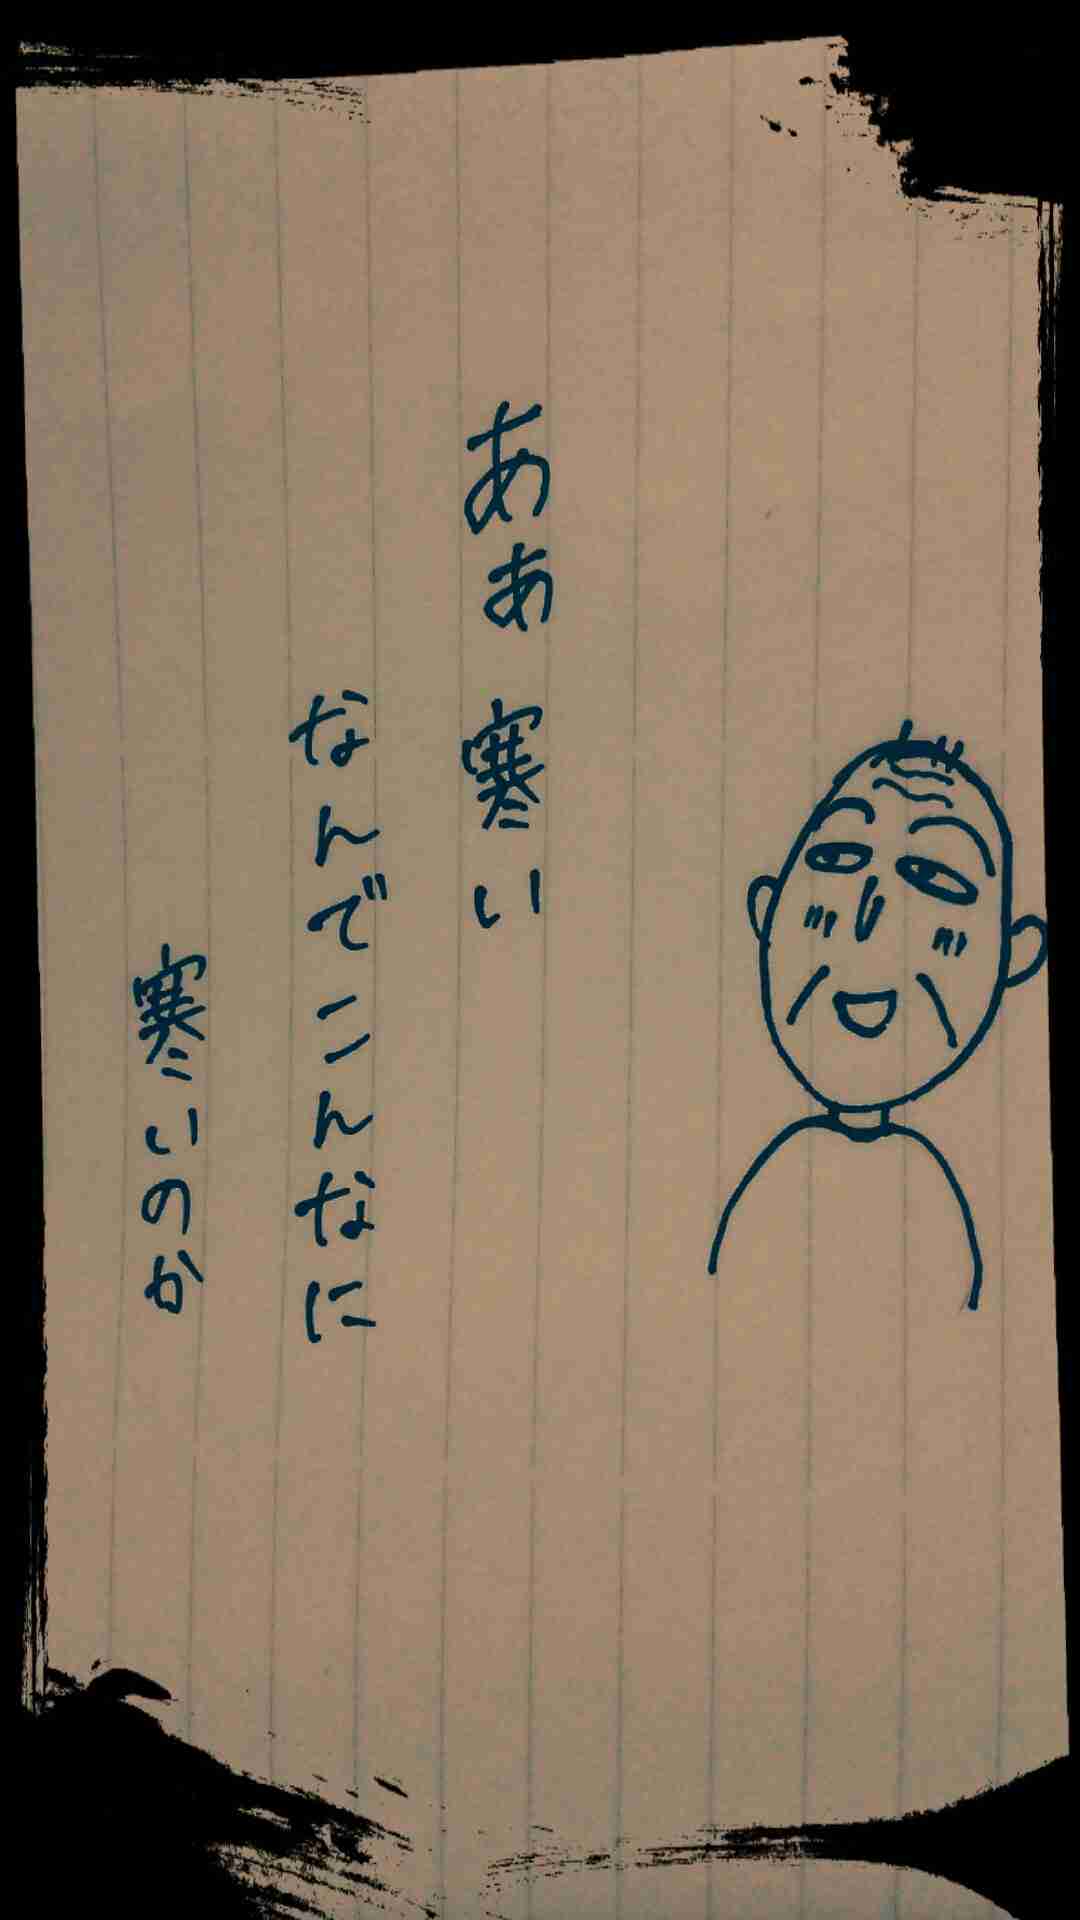 ああ 寒い
なんでこんなに
寒いのか